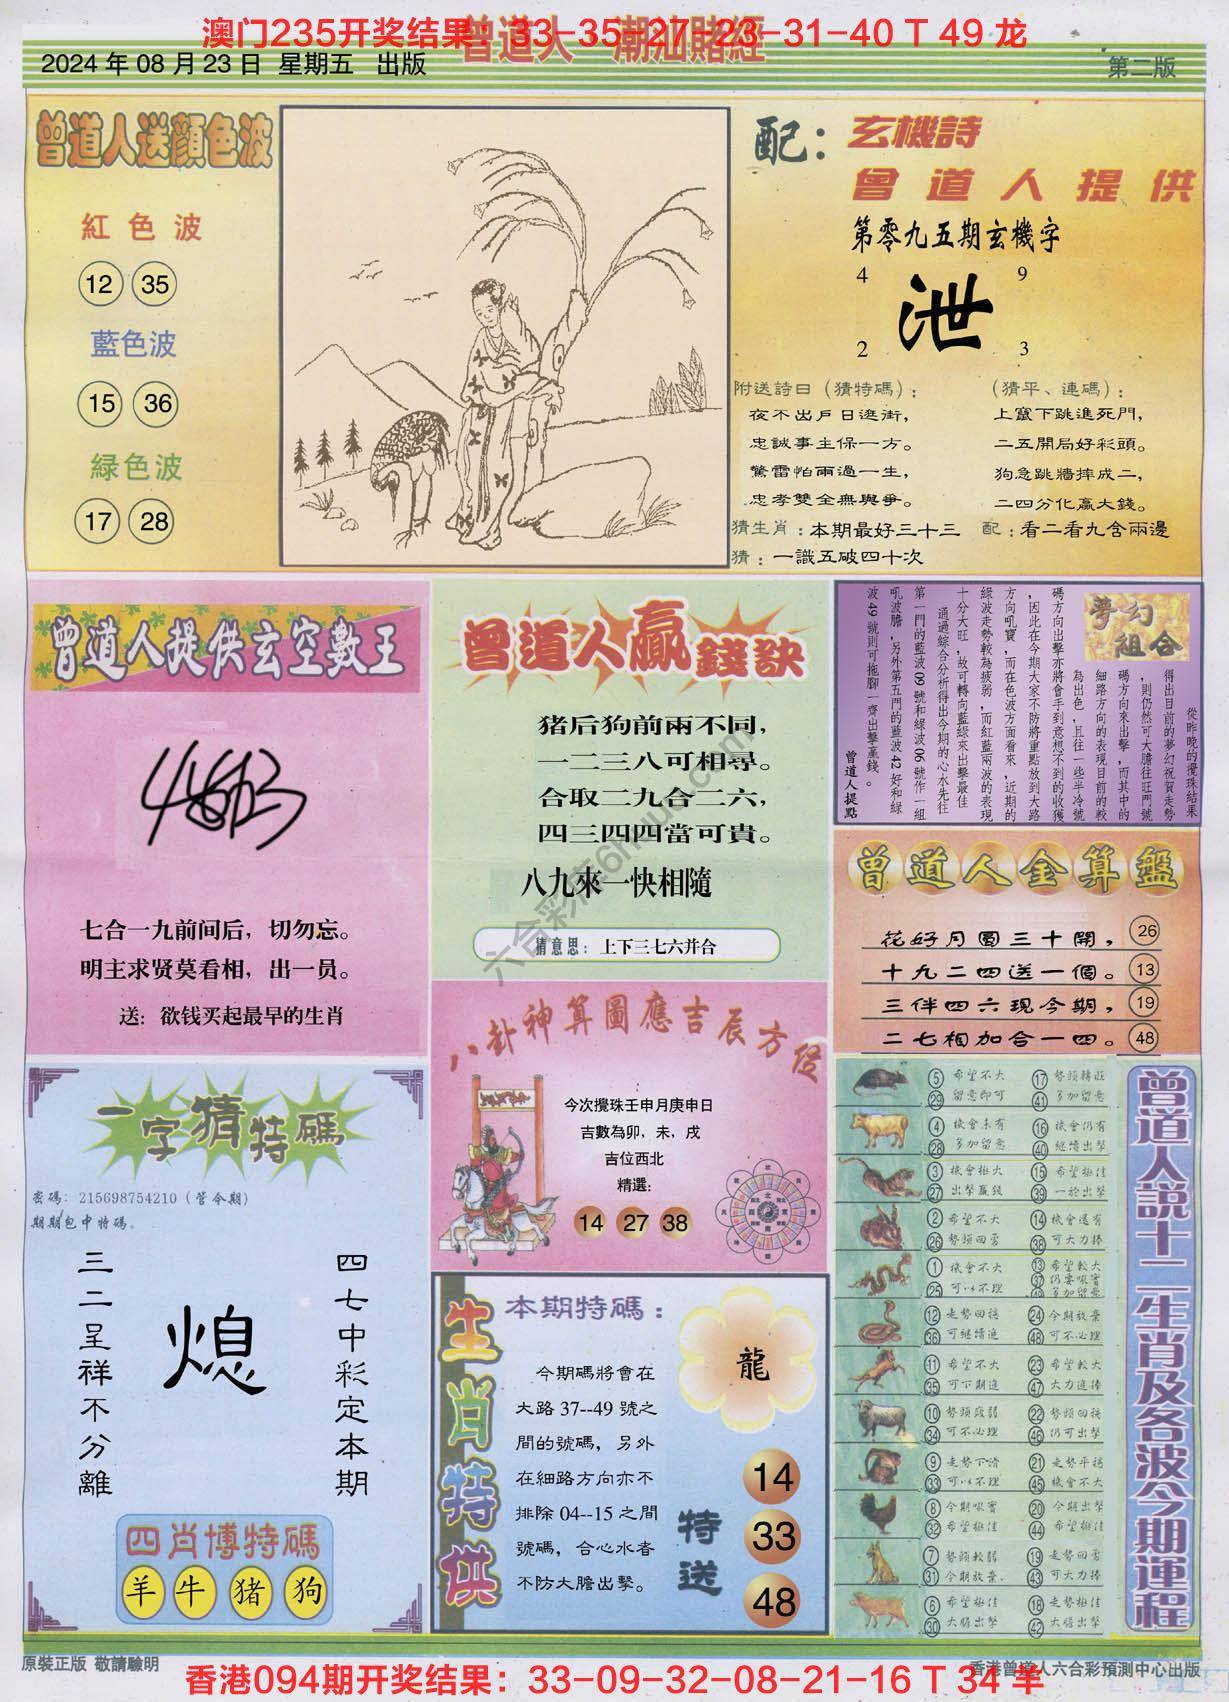 澳门235开奖结果：33-35-27-23-31-40 T 49 龙
曾道人 潮汕賭經
2024 年 08 月 23 日 星期五 出版
第二版
曾道人送顏色波
紅色波
12 35
藍色波
15 36
緑色波
17 28
配：玄機詩
曾道人提供
第零九五期玄機字
4 9
泄
2 3
附送詩曰（猜特碼）：
夜不出戶日逛街，
忠誠事主保一方。
驚雷怕雨過一生，
忠孝雙全無與爭。
猜生肖：本期最好三十三
猜：一識五破四十次
（猜平、連碼）：
上竄下跳進死門，
二五開局好彩頭。
狗急跳牆摔成二，
二四分化贏大錢。
配：看二看九含兩邊
曾道人提供玄空數王
七合一九前间后，切勿忘。
明主求贤莫看相，出一员。
送：欲钱买起最早的生肖
曾道人贏錢訣
猪后狗前兩不同，
一二三八可相尋。
合取二九合二六，
四三四四當可貴。
八九來一快相隨
猜意思：上下三七六并合
夢幻組合
從昨晚的攪珠結果
得出目前的夢幻祝賀走勢
，則仍然可大膽往旺門號
碼方向來出擊，而其中的
細路方向的表現目前的較
為出色，且往一些半冷號
碼方向出擊亦將會手到意想不到的收獲
，因此在今期大家不防將重點放到大路
方向吼寶，而在色波方面看來，近期的
綠波走勢較為疲弱，而紅藍兩波的表現
十分大旺，故可轉向藍綠來出擊最佳
通過綜合分析得出今期的心水先往
第一門的藍波09號和綠波06號作一組
吼波膽，另外第五門的藍波42好和綠
波49號則可拖腳一齊出擊贏錢。
曾道人提點
曾道人金算盤
花好月圆三十開， 26
十九二四送一個。 13
三伴四六現今期， 19
二七相加合一四。 48
八卦神算圖應吉辰方位
今次攪珠壬申月庚申日
吉數為卯，未，戌
吉位西北
精選：
14 27 38
一字猜特碼
密碼：215698754210（管令期）
期期包中特碼。
四七中彩定本期
熄
三二呈祥不分離
四肖博特碼
羊 牛 猪 狗
生肖特供
本期特碼：
龍
今期碼將會在
大路 37--49 號之
間的號碼，另外
在細路方向亦不
排除 04--15 之間
號碼，合心水者
不防大膽出擊。
特送
14
33
48
曾道人説十二生肖及各波今期運程
5 29 希望不大 留意即可 17 41 勢頭轉旺 多加留意
4 28 機會未有 多加留意 16 40 機會仍有 繼續出擊
3 27 機會挺大 出擊贏錢 15 39 希望挺佳 一於出擊
2 26 希望不大 勢頭回勇 14 38 機會還有 可大力捧
1 25 機會不大 可以不理 13 37 49 希望較大 仍要吼實 多加留意
12 36 走勢回穩 可繼續追 24 48 今期放棄 可不必理
11 35 希望不大 可下期追 23 47 希望較大 大力追捧
10 34 勢頭疲弱 可不必理 22 46 勢頭回穩 仍可出擊
9 33 走勢下滑 可以不理 21 45 走勢平穩 機會不大
8 32 今期吼實 希望挺佳 20 44 今期出擊 希望挺佳
7 31 勢頭較弱 今期放棄. 19 43 走勢回勇 可大力捧
6 30 希望挺佳 大膽出擊 18 42 走勢挺佳 大膽出擊
原裝正版 敬請驗明
香港曾道人六合彩預測中心出版
香港094期开奖结果：33-09-32-08-21-16 T 34 羊